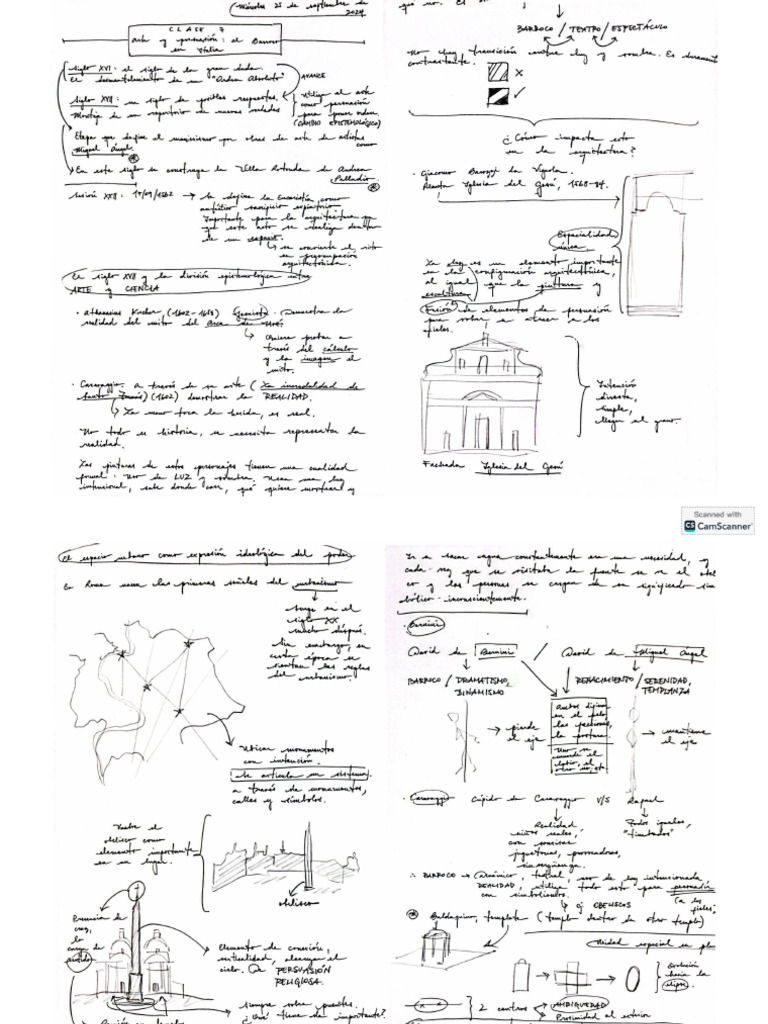 Miércoles 25 de septiembre de 2024
CLASE 7
Arte y persuasión: el Barroco en Italia
Siglo XVI: el siglo de la gran duda.
El desmantelamiento de un "Orden Absoluto"
AVANCE
Siglo XVII: un siglo de posibles respuestas.
Montaje de un repertorio de nuevas verdades
Utiliza el arte como persuasión para poner orden
(CAMBIO EPISTEMOLÓGICO)
Etapa que define el manierismo por obras de arte de artistas como
Miguel Ángel.
En este siglo se construye la Villa Rotonda de Andrea
Palladio
Sesión XXII: 17/09/1562
Se define la Eucaristía como
auténtico sacrificio expiatorio
Importante para la arquitectura ya
que este acto se realiza dentro
de un espacio
se convierte el rito
en preocupación
arquitectónica.
El siglo XVII y la división epistemológica entre
ARTE y CIENCIA
· Athanasius Kircher (1602-1680) Demuestra la
realidad del mito del arca de Noé
Quiere probar a
través del cálculo
y la imagen el
mito.
· Caravaggio. a través de su arte (La incredulidad de
Santo Tomás) (1602) demostrar la REALIDAD.
La mano toca la herida, es real.
No todo es historia, se necesita representar la
realidad.
Las pinturas de estos personajes tienen una cualidad
formal: Uso de LUZ y sombra. Usan una luz
intencional, sabe donde cae, qué quiere mostrar y
qué no.
BARROCO / TEATRO / ESPECTÁCULO
No hay transición entre luz y sombra. Es duramente
contrastante.
¿Cómo impacta esto
en la arquitectura?
· Giacomo Barozzi da Vignola.
Planta Iglesia del Gesú, 1568-84.
Espacialidad
única
La luz es un elemento importante
en la configuración arquitectónica,
al igual que la pintura y
escultura.
Fusión de elementos de persuasión
para atraer a los
fieles.
Intención
directa,
simple,
llegar al grano.
Fachada Iglesia del Gesú
Scanned with
CS CamScanner
El espacio urbano como expresión ideológica del poder
En Roma nacen las primeras señales del urbanismo
Surge en el
siglo XX
mucho después.
Sin embargo, en
esta época se
sientan las reglas
del urbanismo.
Ubicar monumentos
con intención.
Se articula un sistema
a través de monumentos,
calles y símbolos.
Vuelve el
obelisco como
elemento importante
en su lugar.
obelisco
Presencia de
cruz,
lo
carga de
sentido
Elemento de conexión,
verticalidad, alcanzar el
cielo. De PERSUASIÓN
RELIGIOSA.
Siempre sobre fuentes.
¿Qué tiene de importante?
Ir a sacar agua constantemente era una necesidad, y
cada vez que se visitaba la fuente se ve el obelis
co y las personas se cargan de su significado sim
bólico inconscientemente.
· Bernini
David de Bernini / David de Miguel Ángel
BARROCO / DRAMATISMO,
DINAMISMO
RENACIMIENTO / SERENIDAD,
TEMPLANZA
pierde
el eje
Ambos dijeron
en el pelo
las facciones,
la postura.
mantiene
el eje
· Caravaggio Cúpido de Caravaggio v/s Rafael
Realidad
niños reales,
con sonrisas
juguetonas, provocadores,
sin vergüenza.
Todos iguales,
"timbrados"
∴ BARROCO → Dinámico, teatral, uso de luz intencionada
REALIDAD, utiliza todo esto para persuadir
con simbolismos. (a los
fieles)
ej OBELISCOS
Baldaquino, templete (templo dentro de otro templo)
Unidad espacial en pla
Evolución
hacia la
elipse
2 centros
AMBIGUEDAD